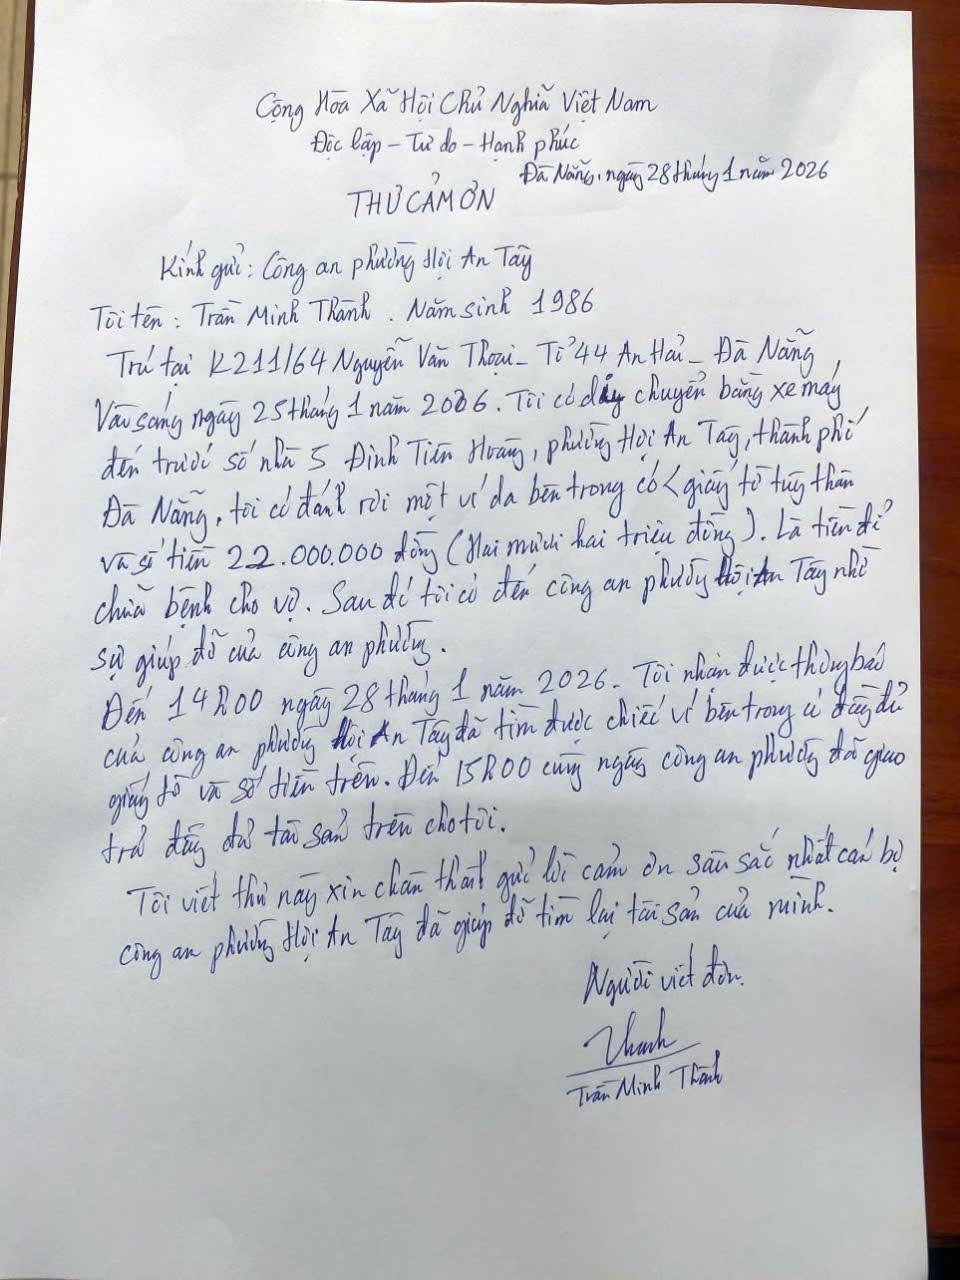 Cộng Hòa Xã Hội Chủ Nghĩa Việt Nam
Độc lập - Tự do - Hạnh phúc
Đà Nẵng, ngày 28 tháng 1 năm 2026
THƯ CẢM ƠN
Kính gửi: Công an phường Hội An Tây
Tôi tên: Trần Minh Thành. Năm sinh 1986
Trú tại K211/64 Nguyễn Văn Thoại - Tổ 44 An Hải - Đà Nẵng
Vào sáng ngày 25 tháng 1 năm 2026. Tôi có di chuyển bằng xe máy
đến trước số nhà 5 Đinh Tiên Hoàng, phường Hội An Tây, thành phố
Đà Nẵng, tôi có đánh rơi một ví da bên trong có giấy tờ tùy thân
và số tiền 22.000.000 đồng (Hai mươi hai triệu đồng). Là tiền để
chữa bệnh cho vợ. Sau đó tôi có đến công an phường Hội An Tây nhờ
sự giúp đỡ của công an phường.
Đến 14h00 ngày 28 tháng 1 năm 2026. Tôi nhận được thông báo
của công an phường Hội An Tây đã tìm được chiếc ví bên trong có đầy đủ
giấy tờ và số tiền trên. Đến 15h00 cùng ngày công an phường đã giao
trả đầy đủ tài sản trên cho tôi.
Tôi viết thư này xin chân thành gửi lời cảm ơn sâu sắc nhất cán bộ
công an phường Hội An Tây đã giúp đỡ tìm lại tài sản của mình.
Người viết đơn.
Thanh
Trần Minh Thành